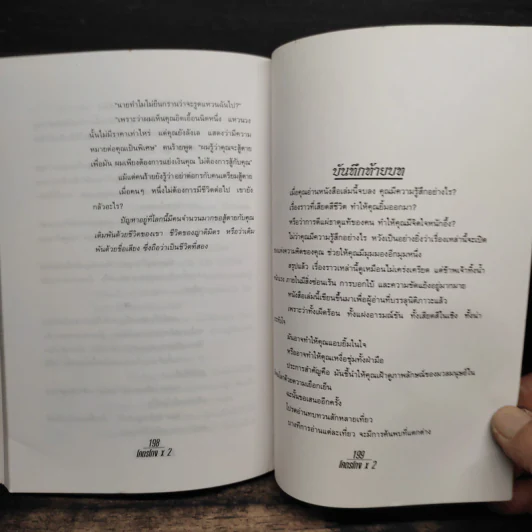 "นายทำไมไม่ยืนกรานว่าจะรูดแหวนฉันไป?"
"เพราะว่าผมเห็นคุณอิดเอื้อนนิดหนึ่ง แหวนวง
นั้นไม่มีราคาเท่าไหร่ แต่คุณยังลังเล แสดงว่ามีความ
หมายต่อคุณเป็นพิเศษ" คนร้ายพูด "ผมรู้ว่าคุณจะสู้ตาย
เพื่อมัน ผมเพียงต้องการแย่งเงินคุณ ไม่ต้องการสู้กับคุณ"
แม้แต่คนร้ายยังรู้ว่าอย่าต่อกรกับคนเตรียมสู้ตาย
เมื่อคนๆ หนึ่งไม่ต้องการมีชีวิตต่อไป เขายัง
กลัวอะไร?
ปัญหาอยู่ที่โลกนี้มีคนจำนวนมากขอสู้ตายกับคุณ
เดิมพันด้วยชีวิตของเขา ชีวิตของญาติมิตร หรือว่าเดิม
พันด้วยชื่อเสียง ซึ่งถือว่าเป็นชีวิตที่สอง
198
โคตรโกง x 2
บันทึกท้ายบท
เมื่อคุณอ่านหนังสือเล่มนี้จบลง คุณมีความรู้สึกอย่างไร?
เรื่องราวที่เสียดสีชีวิต ทำให้คุณยิ้มออกมา?
หรือว่าการตีแผ่ธาตุแท้ของคน ทำให้คุณมีจิตใจหนักอึ้ง?
ไม่ว่าคุณมีความรู้สึกอย่างไร หวังเป็นอย่างยิ่งว่าเรื่องเหล่านี้จะเปิด
ความคิดของคุณ ช่วยให้คุณมีมุมมองอีกมุมหนึ่ง
สรุปแล้ว เรื่องราวเหล่านี้ดูเหมือนไม่เคร่งเครียด แต่ข้าพเจ้าทั้งน้ำ
ภายในมีสิ่งซ่อนเร้น การบอกใบ้ และความขัดแย้งอยู่มากมาย
หนังสือเล่มนี้เขียนขึ้นมาเพื่อผู้อ่านที่บรรลุนิติภาวะแล้ว
เพราะว่าทั้งเผ็ดร้อน ทั้งแฝงอารมณ์ขัน ทั้งเสียดสีในเชิง ทั้งน่า
มันอาจทำให้คุณแอบยิ้มในใจ
หรืออาจทำให้คุณเหงื่อชุ่มทั้งฝ่ามือ
ประการสำคัญคือ มันชี้นำให้คุณเฝ้าดูภาพลักษณ์ของมวลมนุษย์ใน
ด้วยความเยือกเย็น
ฉะนั้นขอเสนออีกครั้ง
โปรดอ่านทบทวนสักหลายเที่ยว
การอ่านแต่ละเที่ยว จะมีการค้นพบที่แตกต่าง
199
โคตรโกง x 2